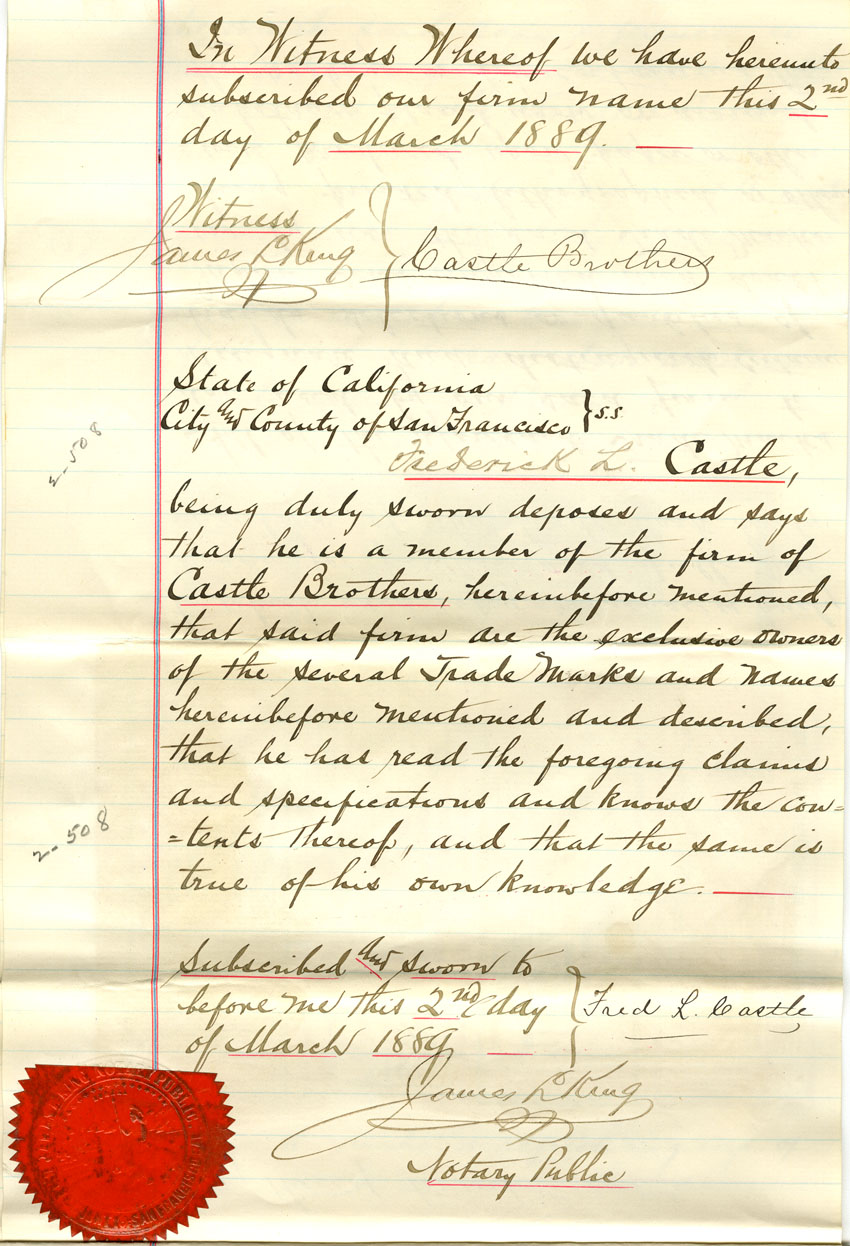 In Witness Whereof we have hereunto
subscribed our firm name this 2nd
day of March 1889.
Witness
James L King } Castle Brothers
State of California
City and County of San Francisco } s.s.
Frederick L. Castle,
being duly sworn deposes and says
that he is a member of the firm of
Castle Brothers, hereinbefore mentioned,
that said firm are the exclusive owners
of the several Trade Marks and names
hereinbefore mentioned and described,
that he has read the foregoing claims
and specifications and knows the con=
=tents thereof, and that the same is
true of his own knowledge.
Subscribed and sworn to
before me this 2nd day } Fred L. Castle
of March 1889
James L King
Notary Public
2-508
2-508